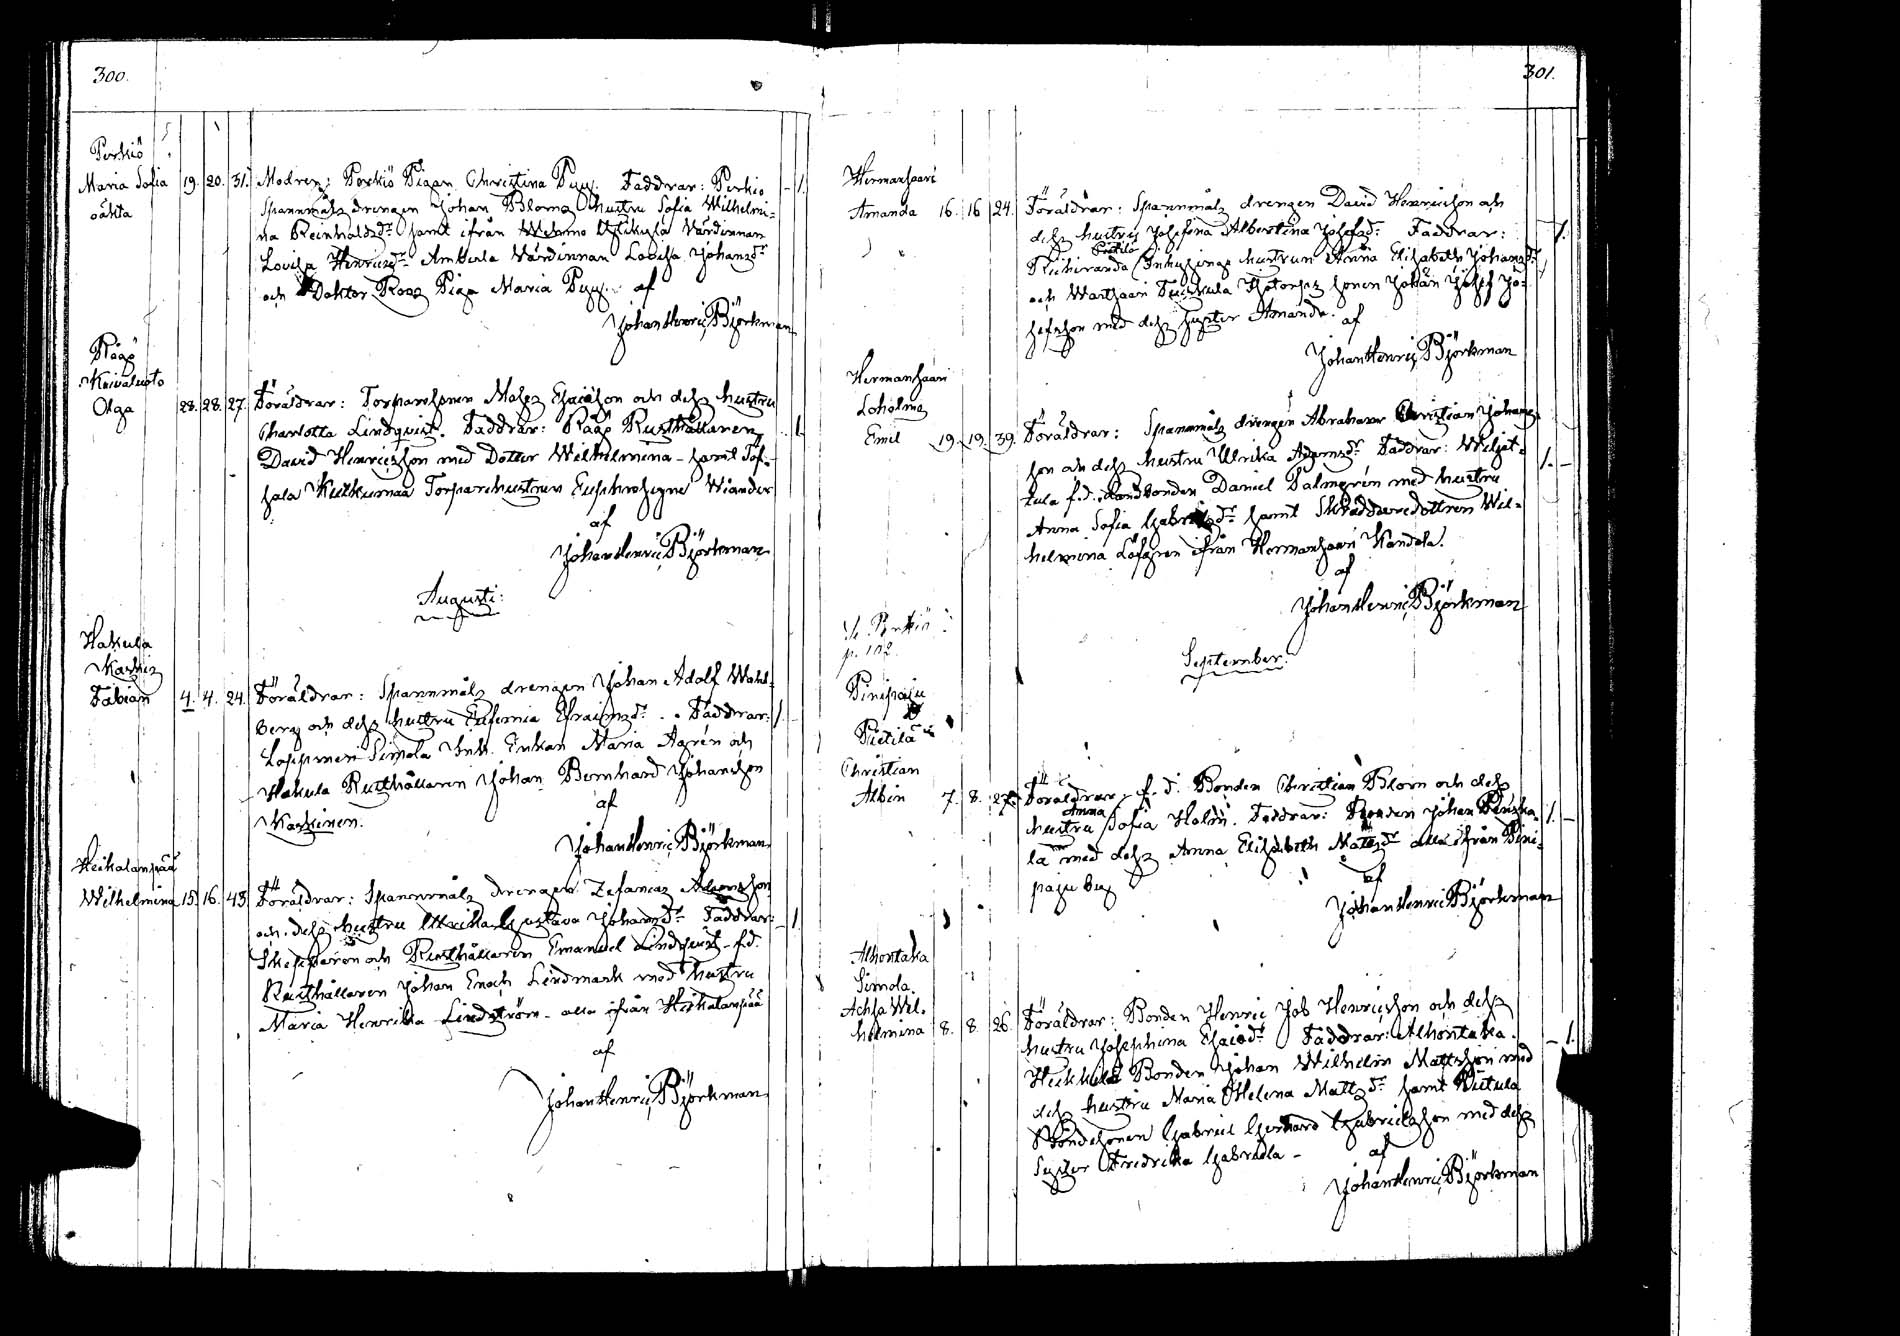 300.
Perkiö
Maria Sofia 19. 20. 31. Modren: Perkiö Pigan Christina Puus. Faddrar: Perkiö 1.
oäkta Spannmåls drengen Johan Bloms hustru Sofia Wilhelmi-
na Reinholdsdr samt ifrån Wärdinnan
Lovisa Henricsdr Amberla Värdinnan Lovisa Johansdr
och Doktor Roos Piga Maria Puus. af
Johan Henric Björkman
Rågö
Knivaluoto
Olga 28. 28. 27. Föräldrar: Torparesonen Mats Esaiæson och dess hustru
Charlotta Lindquist. Faddrar: Rågö Rusthållaren 1.
David Henricsson med Dotter Wilhelmina - samt Töf-
sala Kuikumaa Torparehustrun Euphrosyne Wiander
af
Johan Henric Björkman
Augusti:
Hakula
Kaskis
Fabian 4. 4. 24. Föräldrar: Spannmåls drengen Johan Adolf Wahl-
berg och dess hustru Eufemia Efraimsdr. Faddrar: 1.
Loppmen Simola Inh. Enkan Maria Agrén och
Hakula Rusthållaren Johan Bernhard Johansson
Kaskinen. af
Johan Henric Björkman
Heikalanpää
Wilhelmina 15. 16. 43. Föräldrar: Spannmåls drengen Zefanias Adamsson
och dess hustru Ulrika Gustava Johansdr Faddrar: 1.
Skepparen och Rusthållaren Emanuel Lindquist - f.d.
Rusthållaren Johan Enoch Lindmark med hustru
Maria Henrika Lindström - alla ifrån Heikalanpää
af
Johan Henric Björkman
301.
Hermansaari
Amanda 16. 16. 24. Föräldrar: Spannmåls drengen David Henricsson och
dess hustru Josefina Albertina Josefsdr. Faddrar: 1.
Pietilä
Inhysings hustrun Anna Elisabeth Johansdr
och Wartsaari Torps sonen Johan Josef Jo-
sefsson med dess syster Amanda. af
Johan Henric Björkman
Hermansaari
Loholms
Emil 19. 19. 39. Föräldrar: Spannmåls drengen Abraham Christian Johans-
son och dess hustru Ulrika Adamsdr Faddrar: 1.
f.d. Landbonden Daniel Palmgrén med hustru
Anna Sofia Gabrielsdr samt Skräddaredottren Wil-
helmina Löfgren ifrån Hermansaari Kandola.
af
Johan Henric Björkman
p. 102.
September:
Pinipaju
Pietilä
Christian
Albin 7. 8. 27. Föräldrar: f.d. Bonden Christian Blom och dess
Anna
hustru Sofia Holm. Faddrar: Bonden Johan 1.
la med dess Anna Elisabeth Matsdr alla ifrån Pini-
paju by af
Johan Henric Björkman
Alhontaka
Simola.
Achsa Wil-
helmina 8. 8. 26. Föräldrar: Bonden Henric Job Henricsson och dess
hustru Josephina Esaiædr Faddrar: Alhontaka 1.
Heikkilä Bonden Johan Wilhelm Mattsson med
dess hustru Maria Helena Mattsdr samt
Bondesonen Gabriel Gerhard Gabrielsson med dess
Syster Fredrika Gabriella - af
Johan Henric Björkman